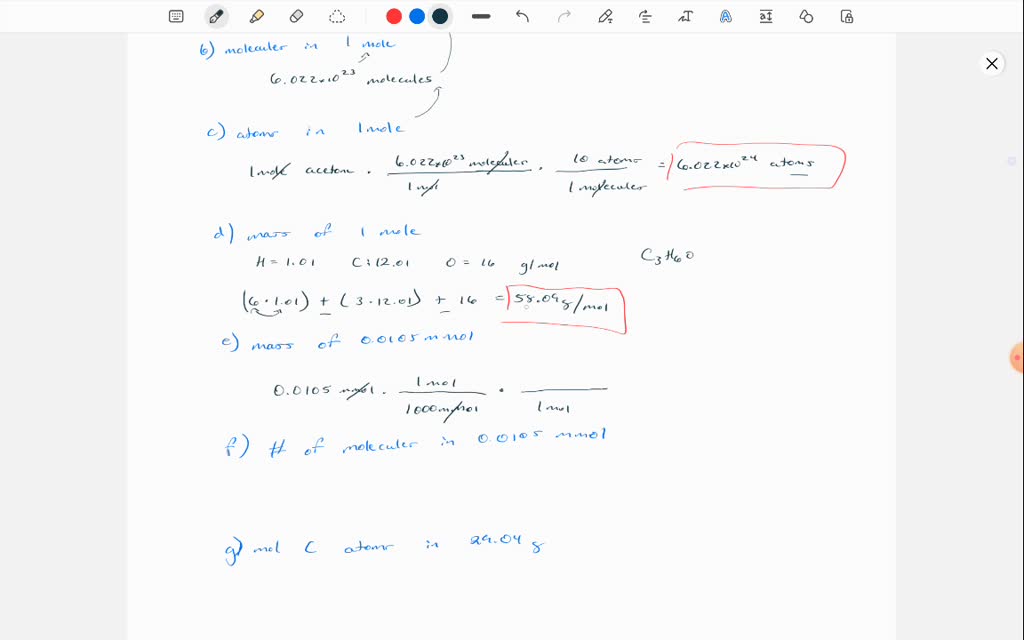 b) moleculer in 1 mole
6.022x10^23 molecules
c) atoms in 1 mole
1 mol acetone · 6.022x10^23 moleculer / 1 mol · 10 atoms / 1 moleculer = 6.022x10^24 atoms
d) mass of 1 mole
H = 1.01 C: 12.01 O = 16 g/mol C3H6O
(6 · 1.01) + (3 · 12.01) + 16 = 58.09 g/mol
e) mass of 0.0105 mmol
0.0105 mmol · 1 mol / 1000 mmol · / 1 mol
f) # of moleculer in 0.0105 mmol
g) mol C atoms in 29.04 g